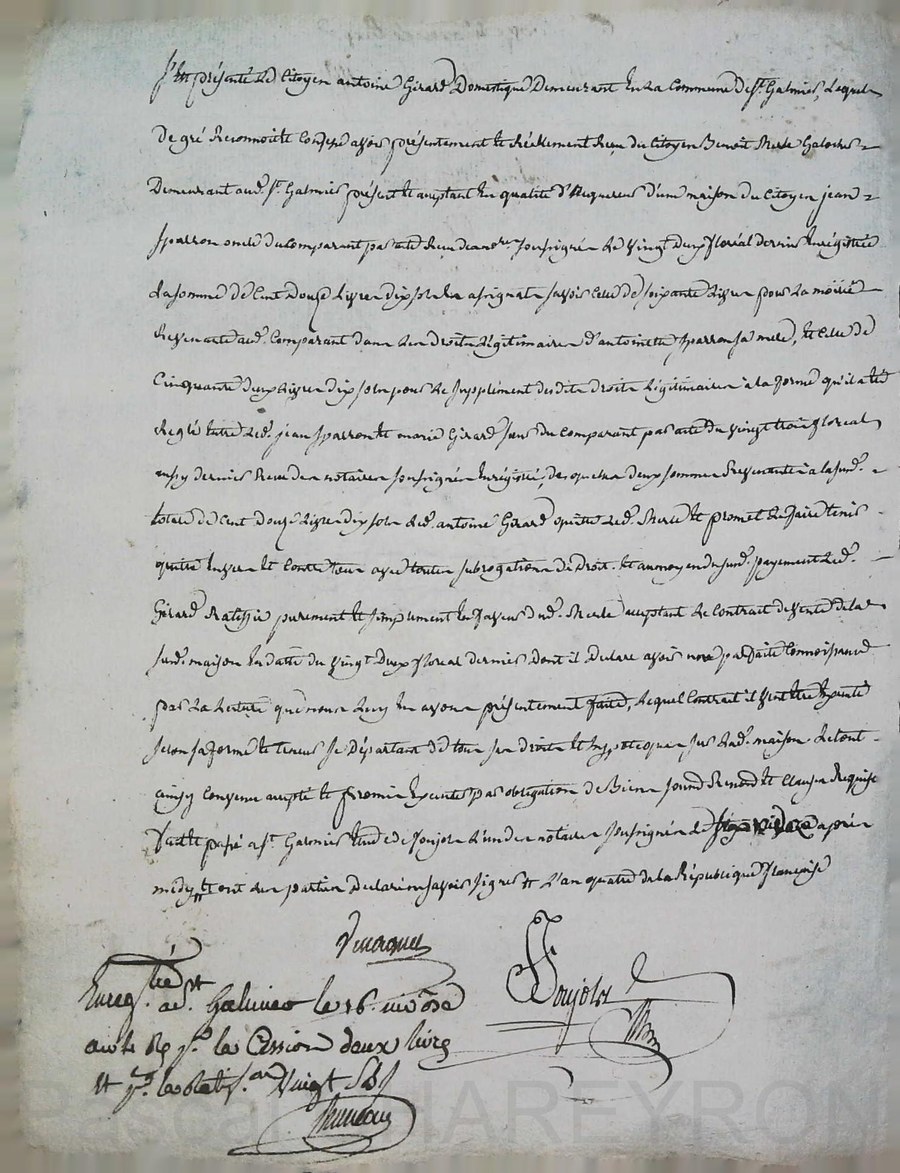 S'est présenté le Citoyen antoine Girard Domestique Demeurant en la Commune de st. Galmier, Lequel
de gré Reconnoit et Confesse avoir présentement et Réellement Reçu du Citoyen Benoit Merle
Demeurant aud. st. Galmier présent et acceptant en qualité d'acquereur d'une maison du Citoyen jean
sparron oncle du Comparant par acte Reçu des nres. soussignés le vingt deux floréal dernier Enregistré
La somme de Cent Douze Livres dix sols en assignats savoir Celle de soixante Livres pour la moitié
Revenante aud. Comparant dans les droits légitimaires d'antoinette sparron sa mere, et Celle de
Cinquante deux Livres dix sols pour le supplément desdits droits légitimaires a la forme qu'il a été
Reglé entre led. jean sparron et marie Girard sœur du Comparant par acte du vingt trois floreal
aussy dernier Reçu des notaires soussignés Enregistré, desquelles deux sommes Revenantes a la susd.
totale de Cent Douze Livres dix sols led. antoine Girard quitte led. Merle et promet le faire tenir
quitte envers et Contre tous avec toutes subrogations de Droit. et au moyen du susd. payement led.
Girard Ratiffie purement et simplement en faveur dud. Merle acceptant le Contract de vente de la
susd. maison en datte du vingt Deux floreal dernier Dont il Declare avoir une parfaite Connoissance
par la Lecture que nous luy en avons présentement faite, Lequel Contrat il veut etre executé
selon sa forme et teneur se Départant de tous ses droits et hypotecques sur lad. maison Le tout
ainsy Convenu accepté et promis executer par obligation de Biens Renoncé et Clauses Requises
fait et passé a st. Galmier Etude de Soujol L'un des notaires soussignés le après
midy et ont les parties Declaré ne savoir signer L'an quatre de la République française
Soujol
Enregtré. a st. Galmier le 16. nivôse
an 4e R p.r la Cession deux livres
et p.r la Ratif.on Vingt Sols